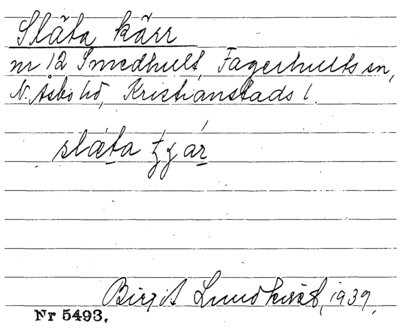 Släta kärr
nr 12 Smedhult, Fagerhults sn,
N. Åsbo hd, Kristianstads l.
släta
Birgit Lundkvist, 1939.
Nr 5493.